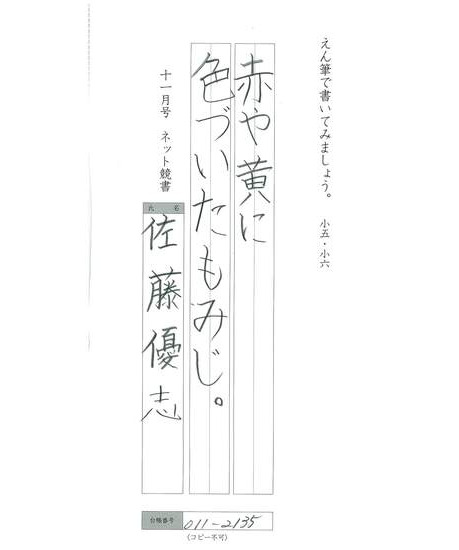 えん筆で書いてみましょう。 小五・小六
赤や黄に
色づいたもみじ。
十一月号 ネット競書
氏名
佐藤優志
台帳番号
011-2135
(コピー不可)